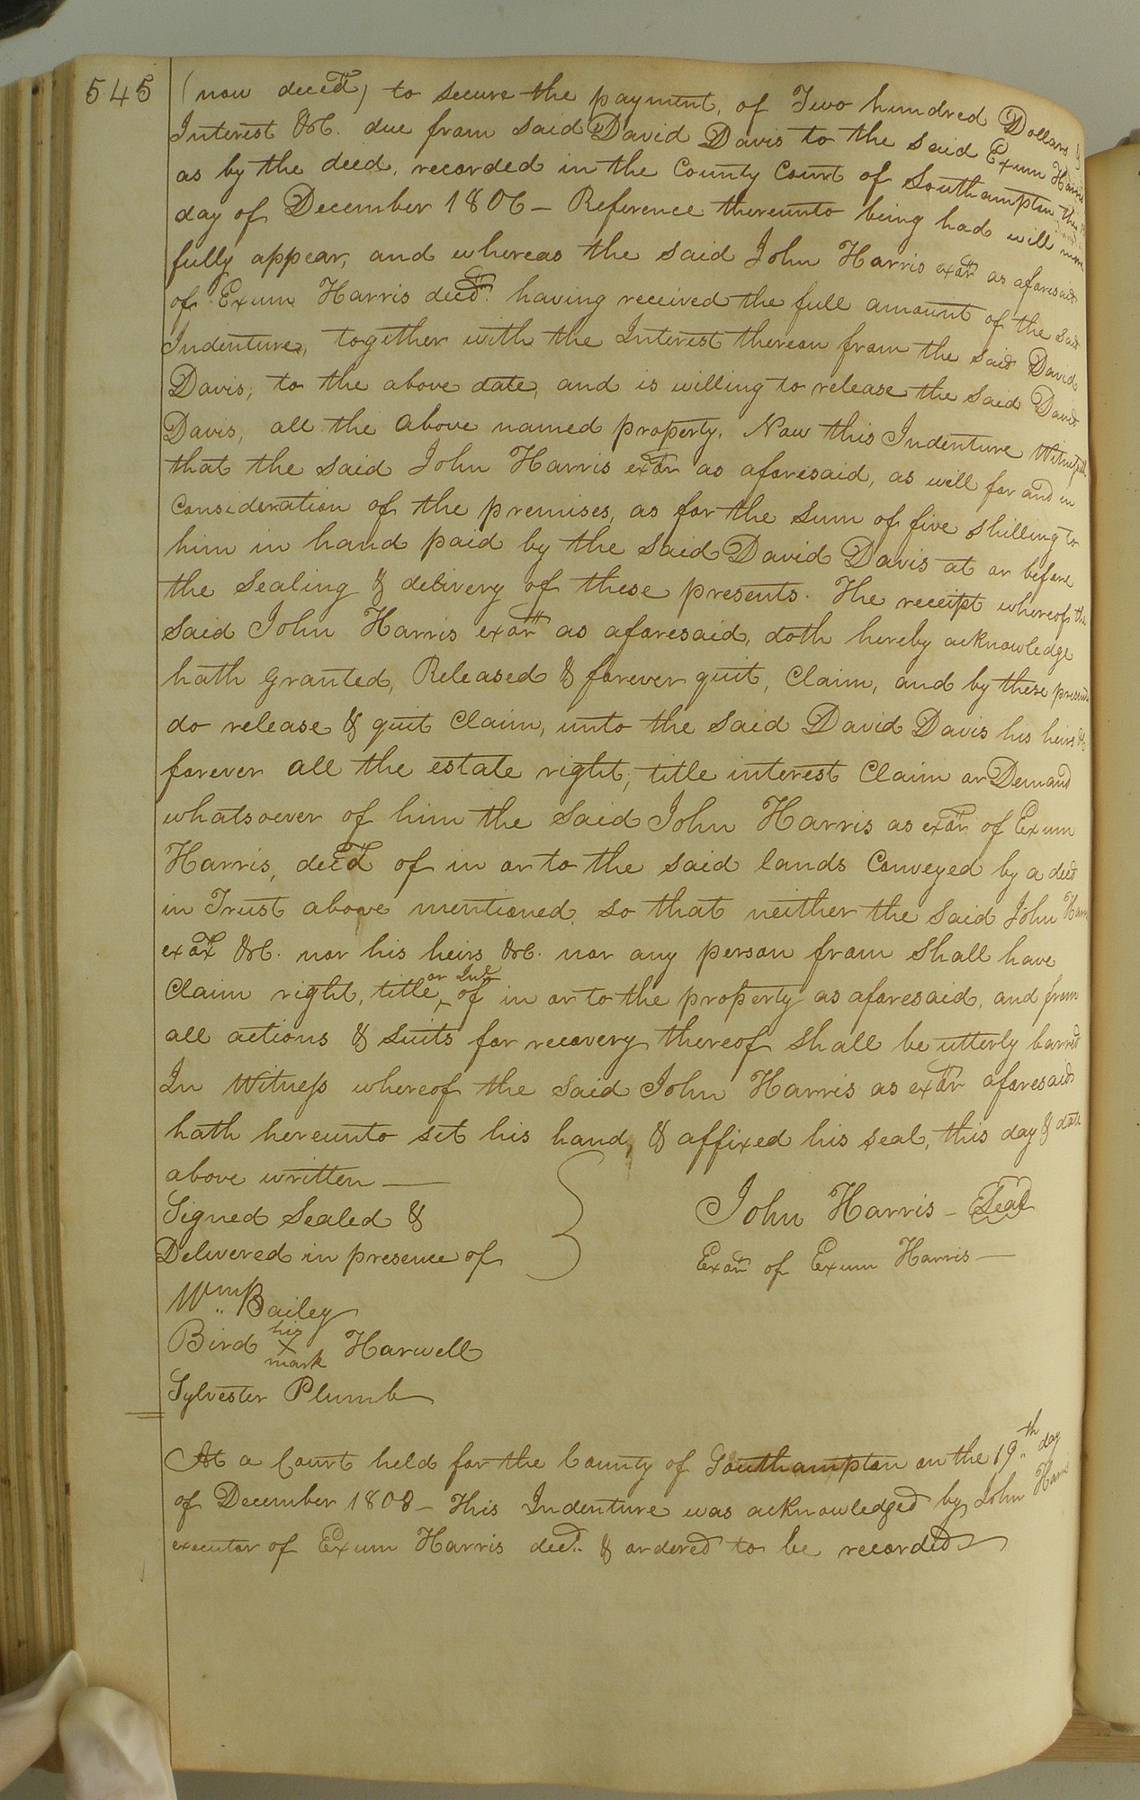 545
(now decd) to secure the payment, of Two hundred Dollars &
Interest &c. due from said David Davis to the said Exum Harris
as by the deed, recorded in the County Court of Southampton the
day of December 1806 – Reference thereunto being had will more
fully appear, and whereas the said John Harris exor as aforesaid
of Exum Harris decd. having received the full amount of the said
Indenture, together with the Interest thereon from the said David
Davis, to the above date, and is willing to release the said David
Davis, all the above named property. Now this Indenture Witnesseth
that the said John Harris exor as aforesaid, as well for and in
Consideration of the premises, as for the sum of five shilling to
him in hand paid by the said David Davis at or before
the Sealing & delivery of these presents. The receipt whereof the
said John Harris exor as aforesaid, doth hereby acknowledge
hath Granted, Released & forever quit, Claim, and by these presents
do release & quit Claim, unto the said David Davis his heirs &c
forever all the estate right, title interest Claim or Demand
whatsoever of him the said John Harris as exor of Exum
Harris, decd of in or to the said lands Conveyed by a deed
in Trust above mentioned so that neither the said John Harris
exor &c. nor his heirs &c. nor any person from shall have
or Int
Claim right, title, ‸ of in or to the property as aforesaid, and from
all actions & suits for recovery thereof shall be utterly barred
In Witness whereof the said John Harris as exor aforesaid
hath hereunto set his hand, & affixed his seal, this day & date
above written —
Signed Sealed &
Delivered in presence of
John Harris – Seal
Exor of Exum Harris —
Wm Bailey
his
Bird X Harwell
mark
Sylvester Plumb
At a Court held for the County of Southampton on the 19th day
of December 1808 – This Indenture was acknowledged by John Harris
executor of Exum Harris decd. & ordered to be recorded